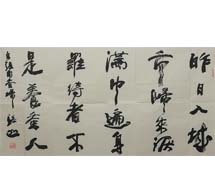 昨日入城
市歸来淚
滿巾遍身
羅綺者不
是養蚕人